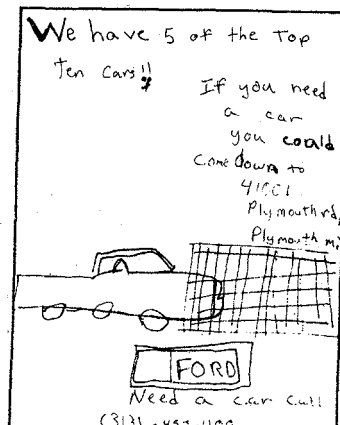 We have 5 of the Top
Ten Cars!!
If you need
a car
you could
Come down to
41001
Plymouth rd,
Plymouth mi
FORD
Need a car call
(313)